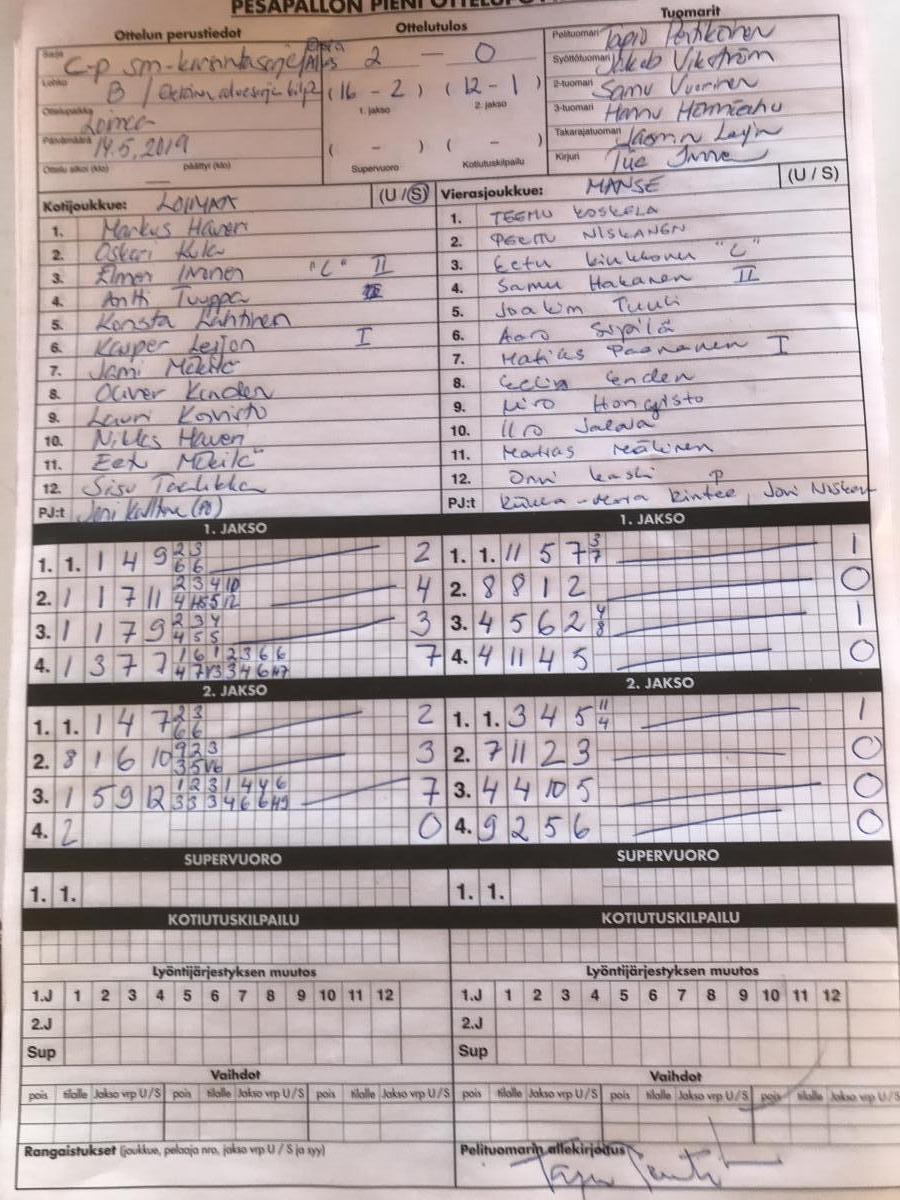 PESÄPALLON PIENI
Ottelun perustiedot Ottelutulos Tuomarit
Sarja C-p sm-karsintasarja 2 — 0 Pelituomari Tapio
Lohko B / (16 - 2) (12 - 1) Syöttötuomari Jakob Vikström
Ottelupaikka Loimaa 1. jakso 2. jakso 2-tuomari Samu Vuorinen
Päivämäärä 14.5.2019 3-tuomari Hannu
( - ) ( - ) Takarajatuoman
Ottelu alkoi (klo) päättyi (klo) — Supervuoro Kotiutuskilpailu Kirjuri Tiie
Kotijoukkue: LOIMAA (U / S) Vierasjoukkue: MANSE (U / S)
1. Markus Haveri 1. TEEMU KOSKELA
2. Oskari Kulo 2. PEETU NISKANEN
3. Elmeri Imonen "C" II 3. Eetu Kiukkonen "C"
4. Antti Tuuppa 4. Samu Hakanen II
5. Konsta Lähtinen 5. Joakim Tuuli
6. Kasper I 6. Aaro Sipilä
7. Jami Mäkilä 7. Matias Paananen I
8. Oliver Kinden 8. Eelin Linden
9. Lauri Koivisto 9. Miro Hongisto
10. Niklas Haveri 10. Iiro Jalava
11. Eetu Mäkilä 11. Matias Mäkinen
12. Sisu 12. Onni Laski P
PJ:t Joni PJ:t Rintee, Joni Niskan
1. JAKSO 1. JAKSO
1. 1. 1 4 9 2 3 2 1. 1. 11 5 7 3 1
6 6 7
2. 1 1 7 11 2 3 4 10 4 2. 8 8 1 2 0
3. 1 1 7 9 2 3 4 3 3. 4 5 6 2 4 1
4 5 5 8
4. 1 3 7 7 1 6 1 2 3 6 6 7 4. 4 11 4 5 0
2. JAKSO 2. JAKSO
1. 1. 1 4 7 2 3 2 1. 1. 3 4 5 11 1
6 6 4
2. 8 1 6 10 9 2 3 3 2. 7 11 2 3 0
3. 1 5 9 12 1 2 3 1 4 4 6 7 3. 4 4 10 5 0
4. 2 0 4. 9 2 5 6 0
SUPERVUORO SUPERVUORO
1. 1. 1. 1.
KOTIUTUSKILPAILU KOTIUTUSKILPAILU
Lyöntijärjestyksen muutos Lyöntijärjestyksen muutos
1.J 1 2 3 4 5 6 7 8 9 10 11 12 1.J 1 2 3 4 5 6 7 8 9 10 11 12
2.J 2.J
Sup Sup
Vaihdot Vaihdot
pois tilalle Jakso vrp U/S pois tilalle Jakso vrp U/S pois tilalle Jakso vrp U/S pois tilalle Jakso vrp U/S pois tilalle Jakso vrp U/S pois tilalle Jakso vrp U/S
Rangaistukset (joukkue, pelaaja nro, jakso vrp U / S ja syy) Pelituomarin allekirjoitus